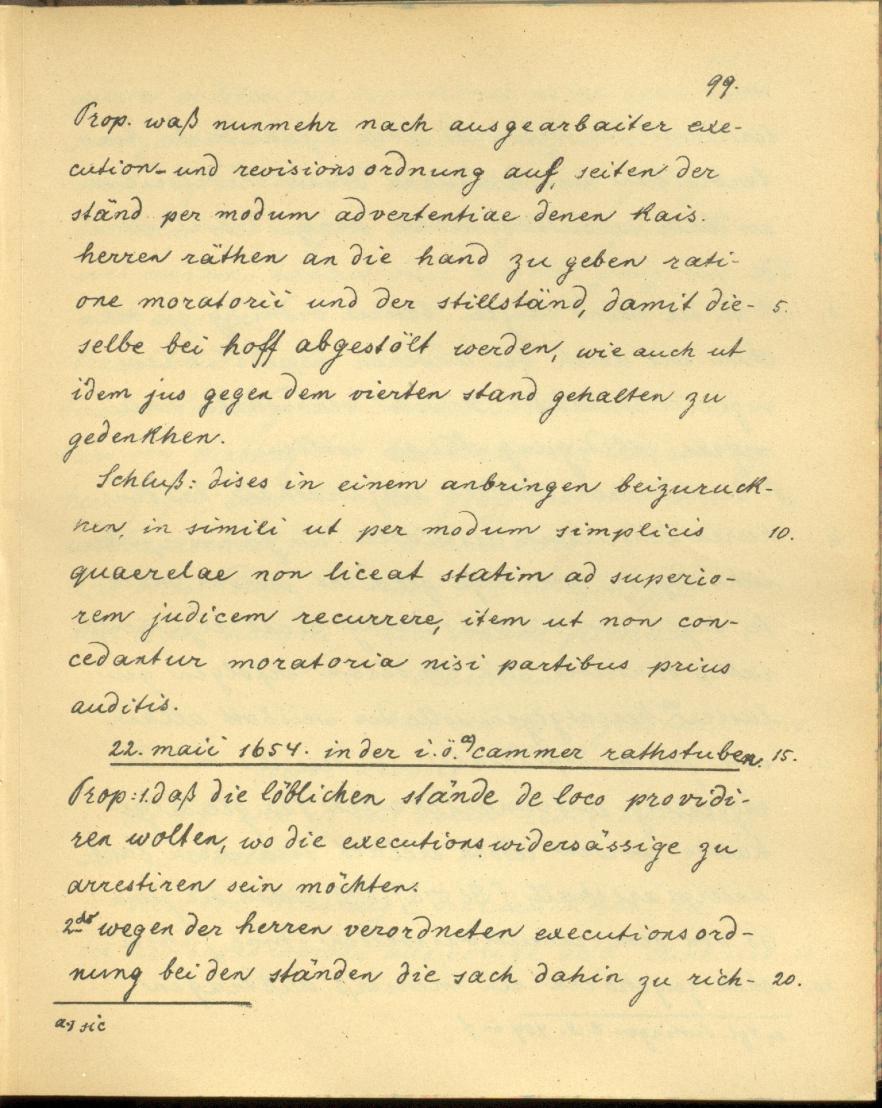 99.
Prop. waß nunmehr nach ausgearbaiter exe-
cution- und revisionsordnung auf seiten der
ständ per modum advertentiae denen kais.
herren räthen an die hand zu geben rati-
one moratorii und der stillständ, damit die- 5.
selbe bei hoff abgestölt werden, wie auch ut
idem jus gegen dem vierten stand gehalten zu
gedenkhen.
Schluß: dises in einem anbringen beizuruck-
hen, in simili ut per modum simplicis 10.
quaerelae non liceat statim ad superio-
rem judicem recurrere, item ut non con-
cedantur moratoria nisi partibus prius
auditis.
22. maii 1654. in der i.ö. a) cammer rathstuben. 15.
Prop: 1. daß die löblichen stände de loco providi-
ren wolten, wo die executionswidersässige zu
arrestiren sein möchten.
2do wegen der herren verordneten executionsord-
nung bei den ständen die sach dahin zu rich- 20.
a.) sic